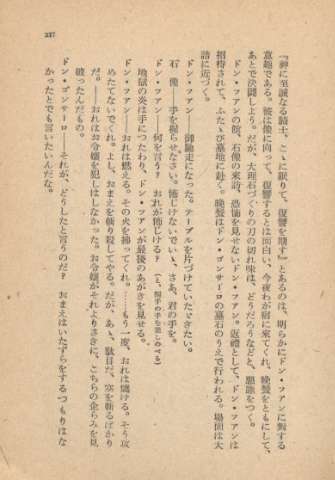 『神に至誠なる騎士、こゝに眠りて、復讐を期す』とあるのは、明らかにドン・フアンに對する
意趣である。彼は像に向つて、復讐するとは面白い、今夜わが宿に來てくれ、晩餐をともにして、
あとで決鬪しよう。だが、大理石づくりの刀の切れ味は、どうだろうなどと、惡態をつく。
ドン・フアンの館、石像の來訪、恐怖を見せないドン・フアン。返禮として、ドン・フアンは
招待されて、ふたゝび墓地に赴く。晩餐はドン・ゴンサーロの墓石のうえで行われる。場面は大
詰に近づく。
ドン・フアン――御馳走になつた。テーブルを片づけていたゞきたい。
石　像――手を握らせなさい。怖じけないでいゝ、さあ、君の手を。
ドン・フアン――何を言う？　おれが怖じける？
地獄の炎は手につたわり、ドン・フアンが最後のあがきを見せる。
ドン・フアン――おれは燃える。その火を捨つてくれ。……もう一度、おれは嘆ける。そう攻
めたてないでくれ。よし、おまえを斬り殺してやる。だが、あゝ、駄目だ。空を斬るばかり
だ。――おれはお令孃を犯しはしなかつた。お令孃がそれよりまさに、こちらの企らみを見
破つたんだもの。
ドン・ゴンサーロ――それが、どうしたと言うのだ？　おまえはいたずらをするつもりはな
かつたとでも言いたいんだな。
237